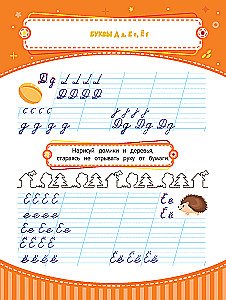 БУКВЫ Д д, Е е, Ё ё
Дд
Д Д Д Д
с с с с
д д д д Дд Дд Дд
Нарисуй домики и деревья,
стараясь не отрывать руку от бумаги.
Е Е Е Е Ее
е е е е Ёё
Ее Ее Ее
Ё Ё Ё Ё
ё ё ё ё Ёё Ёё Ёё